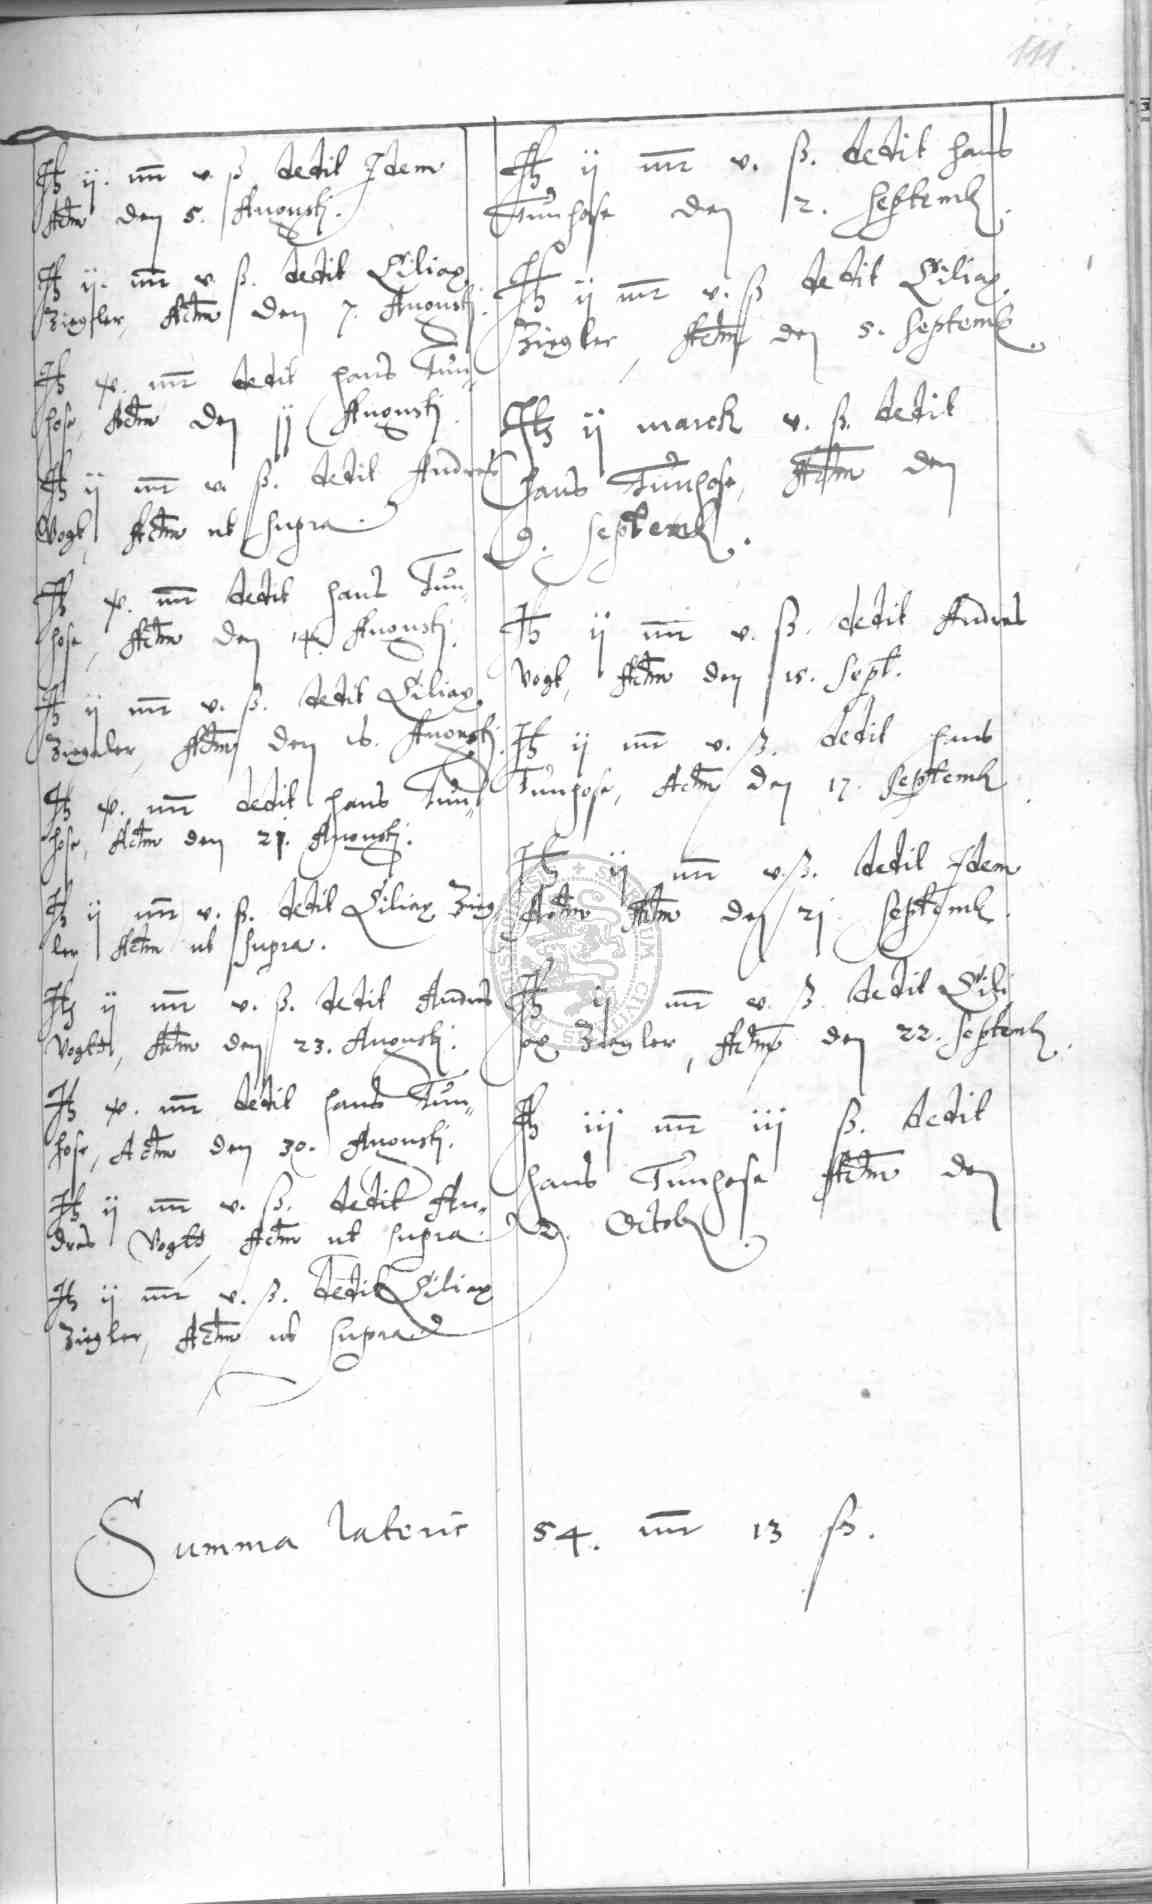 111.
Jtz ij. mr v. ß dedit Jdem
Actm den 5. Augustj.
Jtz ij. mr v. ß. dedit Ciliax
Ziegler, Actm den 7. Augustj.
Jtz x. mr dedit Hans Tun-
hose, Actm den jj Augustj.
Jtz ij mr v. ß. dedit Andres
Vogt, Actm ut supra.
Jtz x. mr dedit Hans Tun-
hose, Actm den 14. Augustj.
Jtz ij mr v. ß. dedit Ciliax
Ziegler, Actm den 16. Augustj.
Jtz x. mr dedit Hans Tun-
hose, Actm den 21. Augustj.
Jtz ij mr v. ß. dedit Ciliax Zieg
ler, Actm ut supra.
Jtz ij mr v. ß. dedit Andres
Vogtt, Actm den 23. Augustj.
Jtz x. mr dedit Hans Tun-
hose, Actm den 30. Augustj.
Jtz ij mr v. ß. dedit An-
dres Vogtt, Actm ut supra.
Jtz ij mr v. ß. dedit Ciliax
Ziegler, Actm ut supra
Jtz ij mr v. ß. dedit Hans
Tunhose den 2. Septemb.
Jtz ij mr v. ß dedit Ciliax
Ziegler, Actm den 5. Septemb.
Jtz ij marck v. ß. dedit
Hans Tunhose, Actm den
9. Septemb.
Jtz ij mr v. ß. dedit Andres
Vogt, Actm den 15. Sept.
Jtz ij mr v. ß. dedit Hans
Tunhose, Actm den 17. Septemb.
Jtz ij mr v. ß. dedit Jdem
Actm Actm den 21 Septemb.
Jtz ij mr v. ß. dedit Cili
ax Ziegler, Actm den 22. Septemb.
Jtz iij mr iij ß. dedit
Hans Tunhose Actm den
2. Octob.
Summa lateris 54. mr 13 ß.